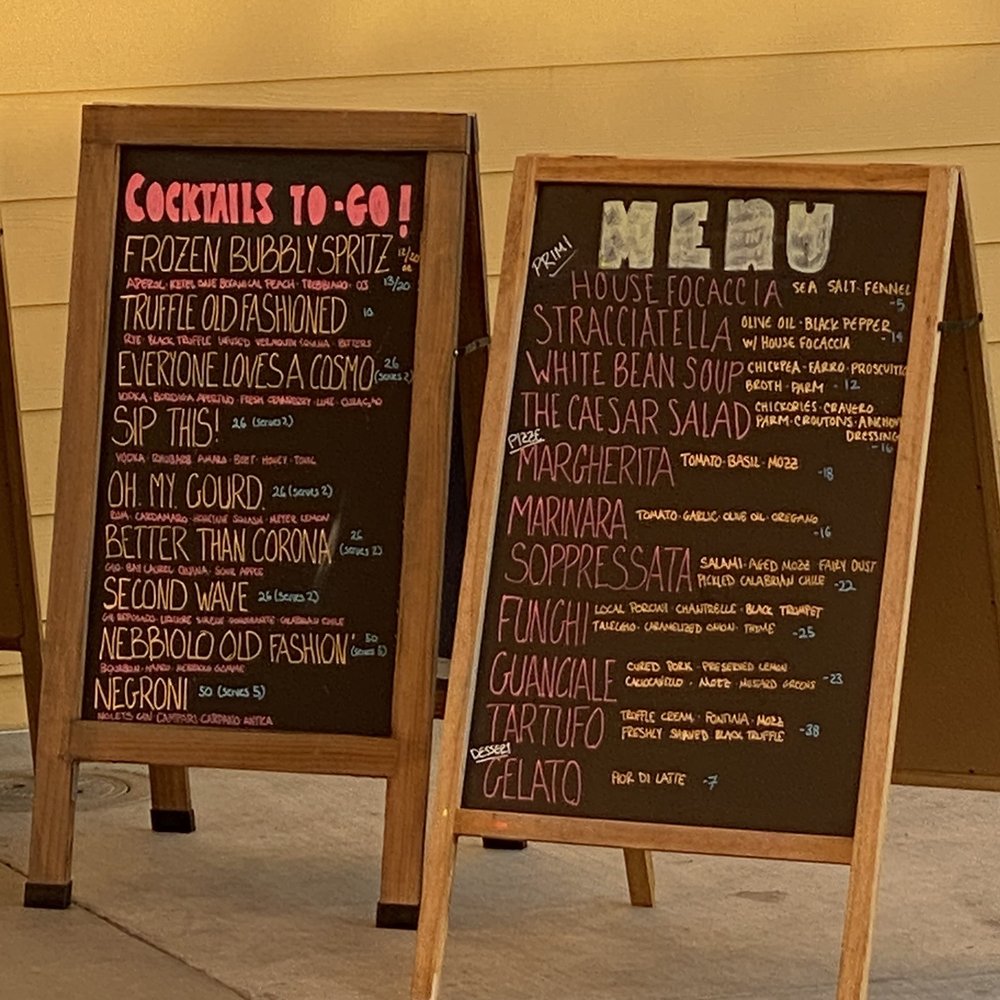 COCKTAILS TO-GO!
FROZEN BUBBLY SPRITZ 12/20
APEROL · KETEL ONE BOTANICAL PEACH · TREBBIANO · OJ 13/20
TRUFFLE OLD FASHIONED 10
RYE · BLACK TRUFFLE INFUSED VERMOUTH · BITTERS
EVERYONE LOVES A COSMO 26 (serves 2)
VODKA · BORDIGA APERITIVO · FRESH CRANBERRY · LIME · CURAÇAO
SIP THIS! 26 (serves 2)
VODKA · RHUBARB AMARO · BEET · HONEY · TONIC
OH. MY. GOURD. 26 (serves 2)
RUM · CARDAMARO · HONEYNUT SQUASH · MEYER LEMON
BETTER THAN CORONA 26 (serves 2)
GIN · BAY LAUREL · SOUR APPLE
SECOND WAVE 26 (serves 2)
REPOSADO · CALABRIAN CHILE
NEBBIOLO OLD FASHION' 50
BOURBON · NEBBIOLO
NEGRONI 50 (serves 5)
NOLETS GIN CAMPARI CARPANO ANTICA
MENU
PRIMI
HOUSE FOCACCIA SEA SALT · FENNEL
-5
STRACCIATELLA OLIVE OIL · BLACK PEPPER
W/ HOUSE FOCACCIA -14
WHITE BEAN SOUP CHICKPEA · FARRO · PROSCUITTO
BROTH · PARM - 12
THE CAESAR SALAD CHICKORIES · CRAVERO
PARM · CROUTONS · ANCHOVY
DRESSING
-16
PIZZE
MARGHERITA TOMATO · BASIL · MOZZ
-18
MARINARA TOMATO · GARLIC · OLIVE OIL · OREGANO
-16
SOPPRESSATA SALAMI · AGED MOZZ · FAIRY DUST
PICKLED CALABRIAN CHILE -22
FUNGHI LOCAL PORCINI · CHANTRELLE · BLACK TROMPET
TALEGGIO · CARAMELIZED ONION · THYME -25
GUANCIALE CURED PORK · PRESERVED LEMON
CACIOCAVELLO · MOZZ · MUSTARD GREENS -23
TARTUFO TRUFFLE CREAM · FONTINA · MOZZ
FRESHLY SHAVED BLACK TRUFFLE -38
DESSERT
GELATO FIOR DI LATTE -7